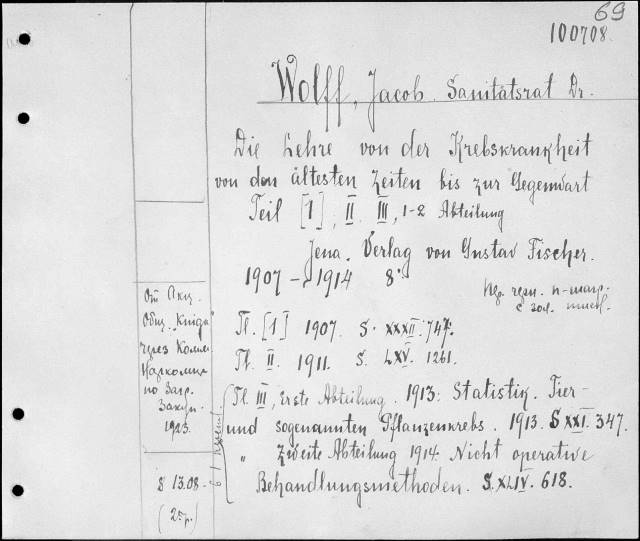 69
100708.
Wolff, Jacob. Sanitätsrat Dr.
Die Lehre von der Krebskrankheit
von den ältesten Zeiten bis zur Gegenwart
Teil [1], II, III, 1-2 Abteilung
Jena. Verlag von Gustav Fischer.
1907 - 1914 8°
с зол. тисн.
Tl. [1] 1907. S. XXXII. 747.
Tl. II. 1911. S. LXV. 1261.
Tl. III, Erste Abteilung. 1913. Statistik. Tier-
und sogenannten Pflanzenkrebs. 1913. S XXI. 347.
" Zweite Abteilung 1914. Nicht operative
Behandlungsmethoden. S. XLIV. 618.
От Акц.
Общ. "Kniga"
через
по Загр.
Закуп.
1923.
8 13.08 -